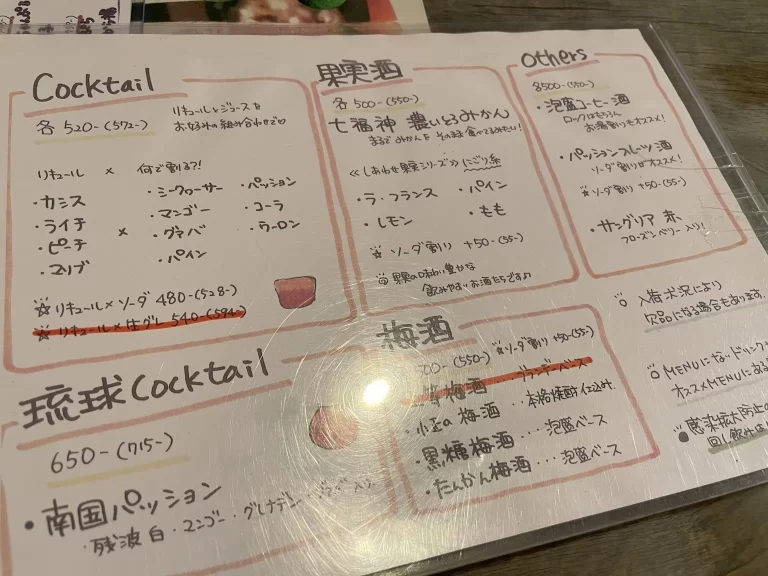 Cocktail
各 520-(572-)
リキュールとジュースを
お好みの組み合わせで♡
リキュール × 何で割る?!
・カシス
・ライチ
・ピーチ
・マリブ
×
・シークワーサー
・マンゴー
・グァバ
・パイン
・パッション
・コーラ
・ウーロン
☆リキュール×ソーダ 480-(528-)
☆リキュール×生グレ 540-(594-)
琉球Cocktail
650-(715-)
・南国パッション
・残波 白・マンゴー・グレナデン
果実酒
各 500-(550-)
七福神 濃いとろみかん
まるでみかんをそのまま食べてるみたい!
≪しあわせ果実シリーズ≫ にごり系
・ラ・フランス
・パイン
・レモン
・もも
☆ ソーダ割り +50-(55-)
◎果実の味わい豊かな
飲みやすいお酒たちです♪
梅酒
500-(550-)
☆ソーダ割り +50-(55-)
梅酒 ... ブランデーベース
・小正の梅酒 ... 本格焼酎仕込み
・黒糖梅酒 ... 泡盛ベース
・たんかん梅酒 ... 泡盛ベース
Others
各500-(550-)
・泡盛コーヒー酒
ロックはもちろん
お湯割りもオススメ!
・パッションフルーツ酒
ソーダ割りがオススメ!
☆ソーダ割り +50-(55-)
・サングリア 赤
フローズンベリー入り!
○ 入荷状況により
欠品になる場合もあります.
○ MENUにないドリンク
オススメMENUにある
● 感染拡大防止の
回し飲みは